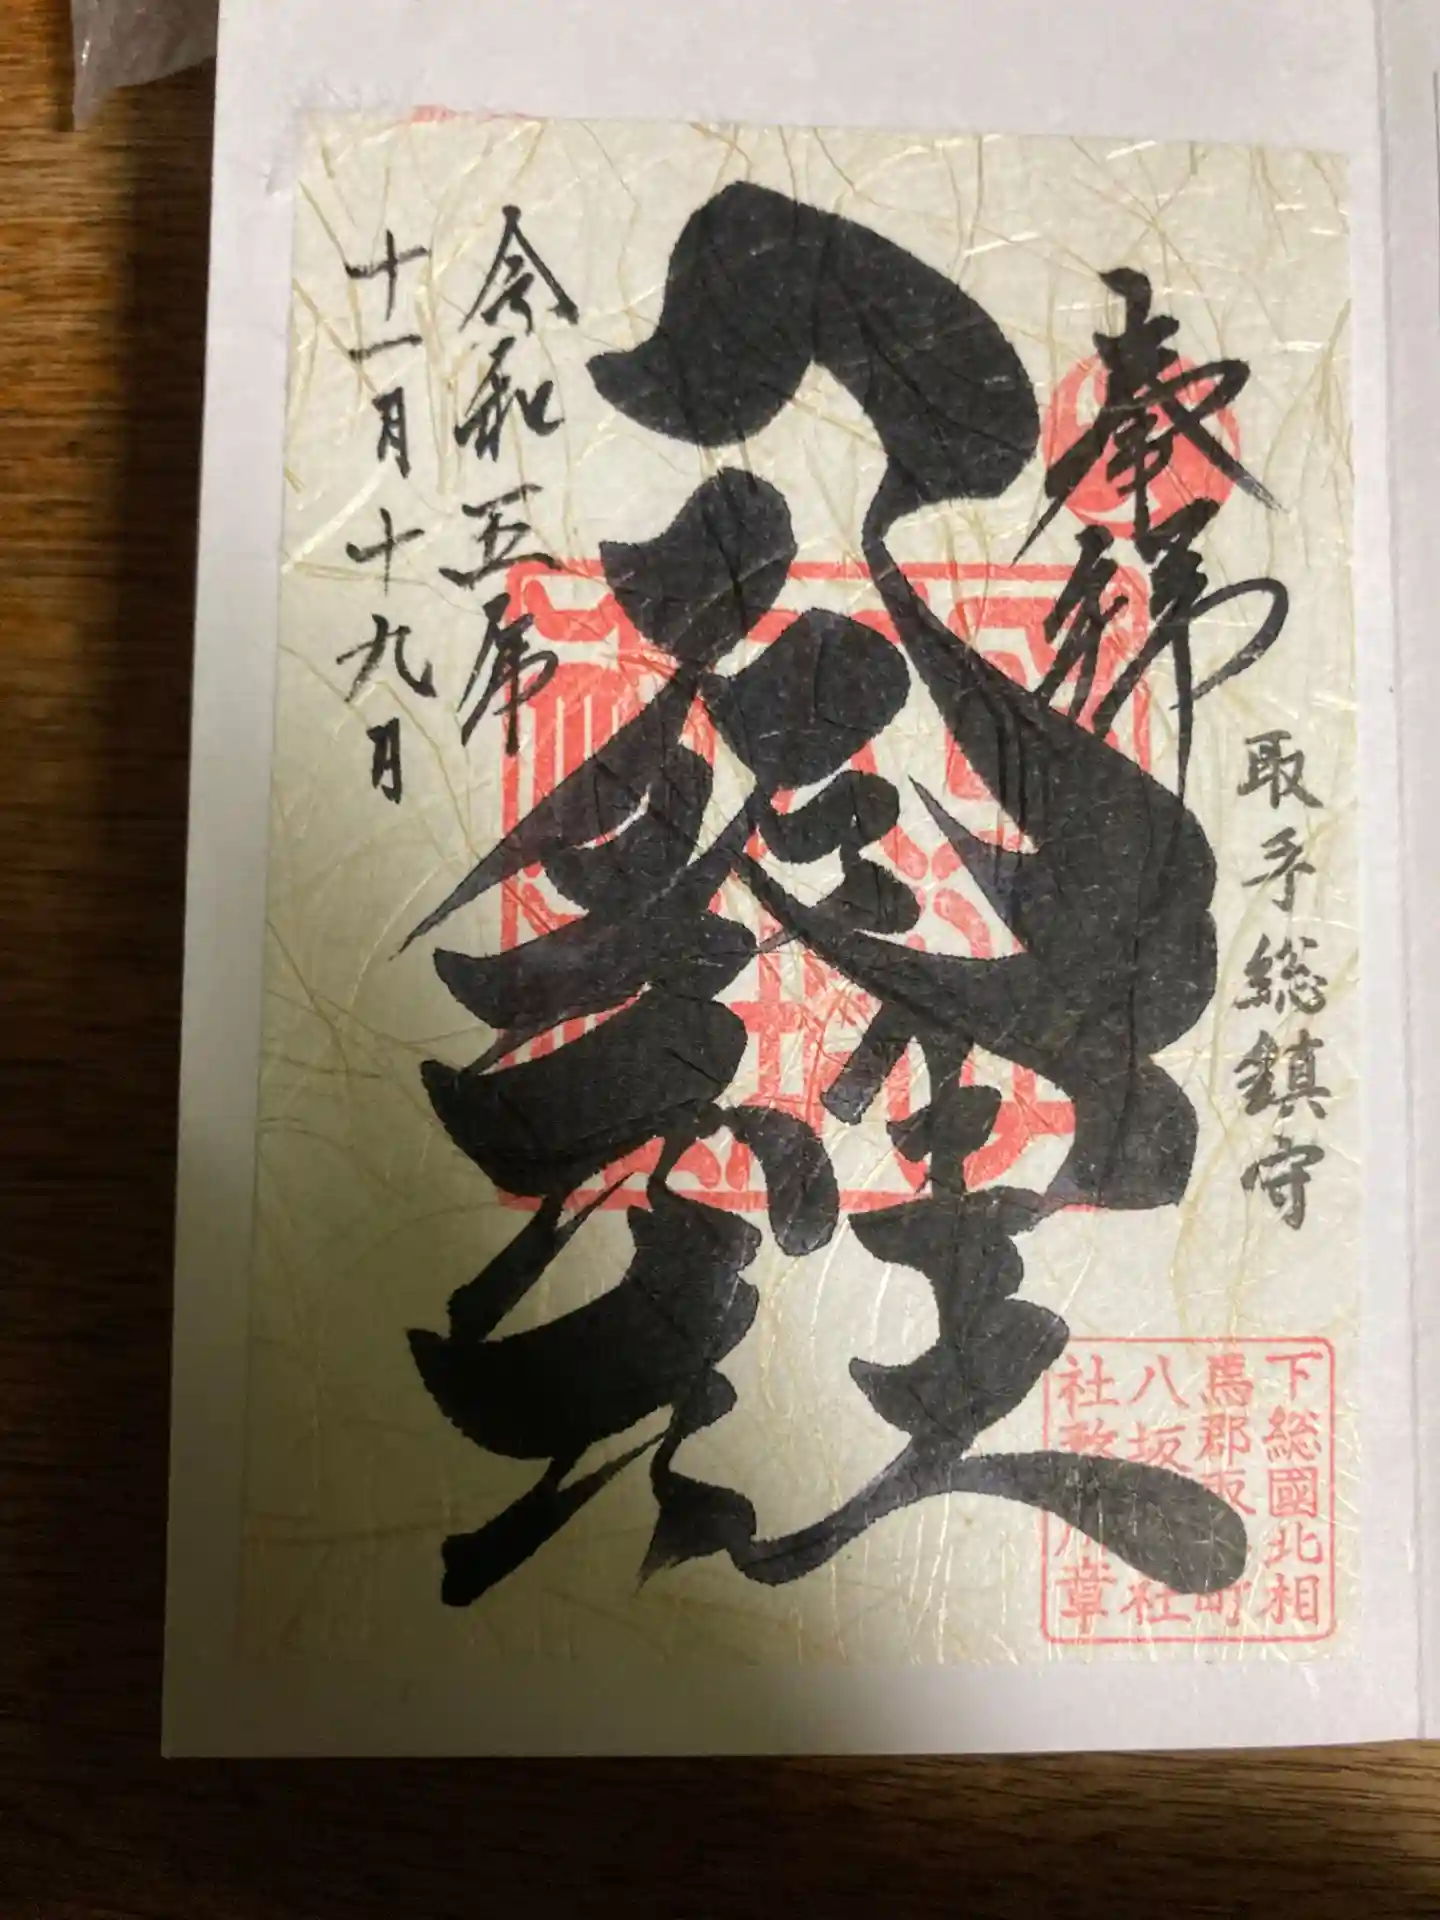 奉拝
取手総鎮守
下総國北相
馬郡取手町
八坂神社
社務所章
八坂神社
令和五年
十一月十九日